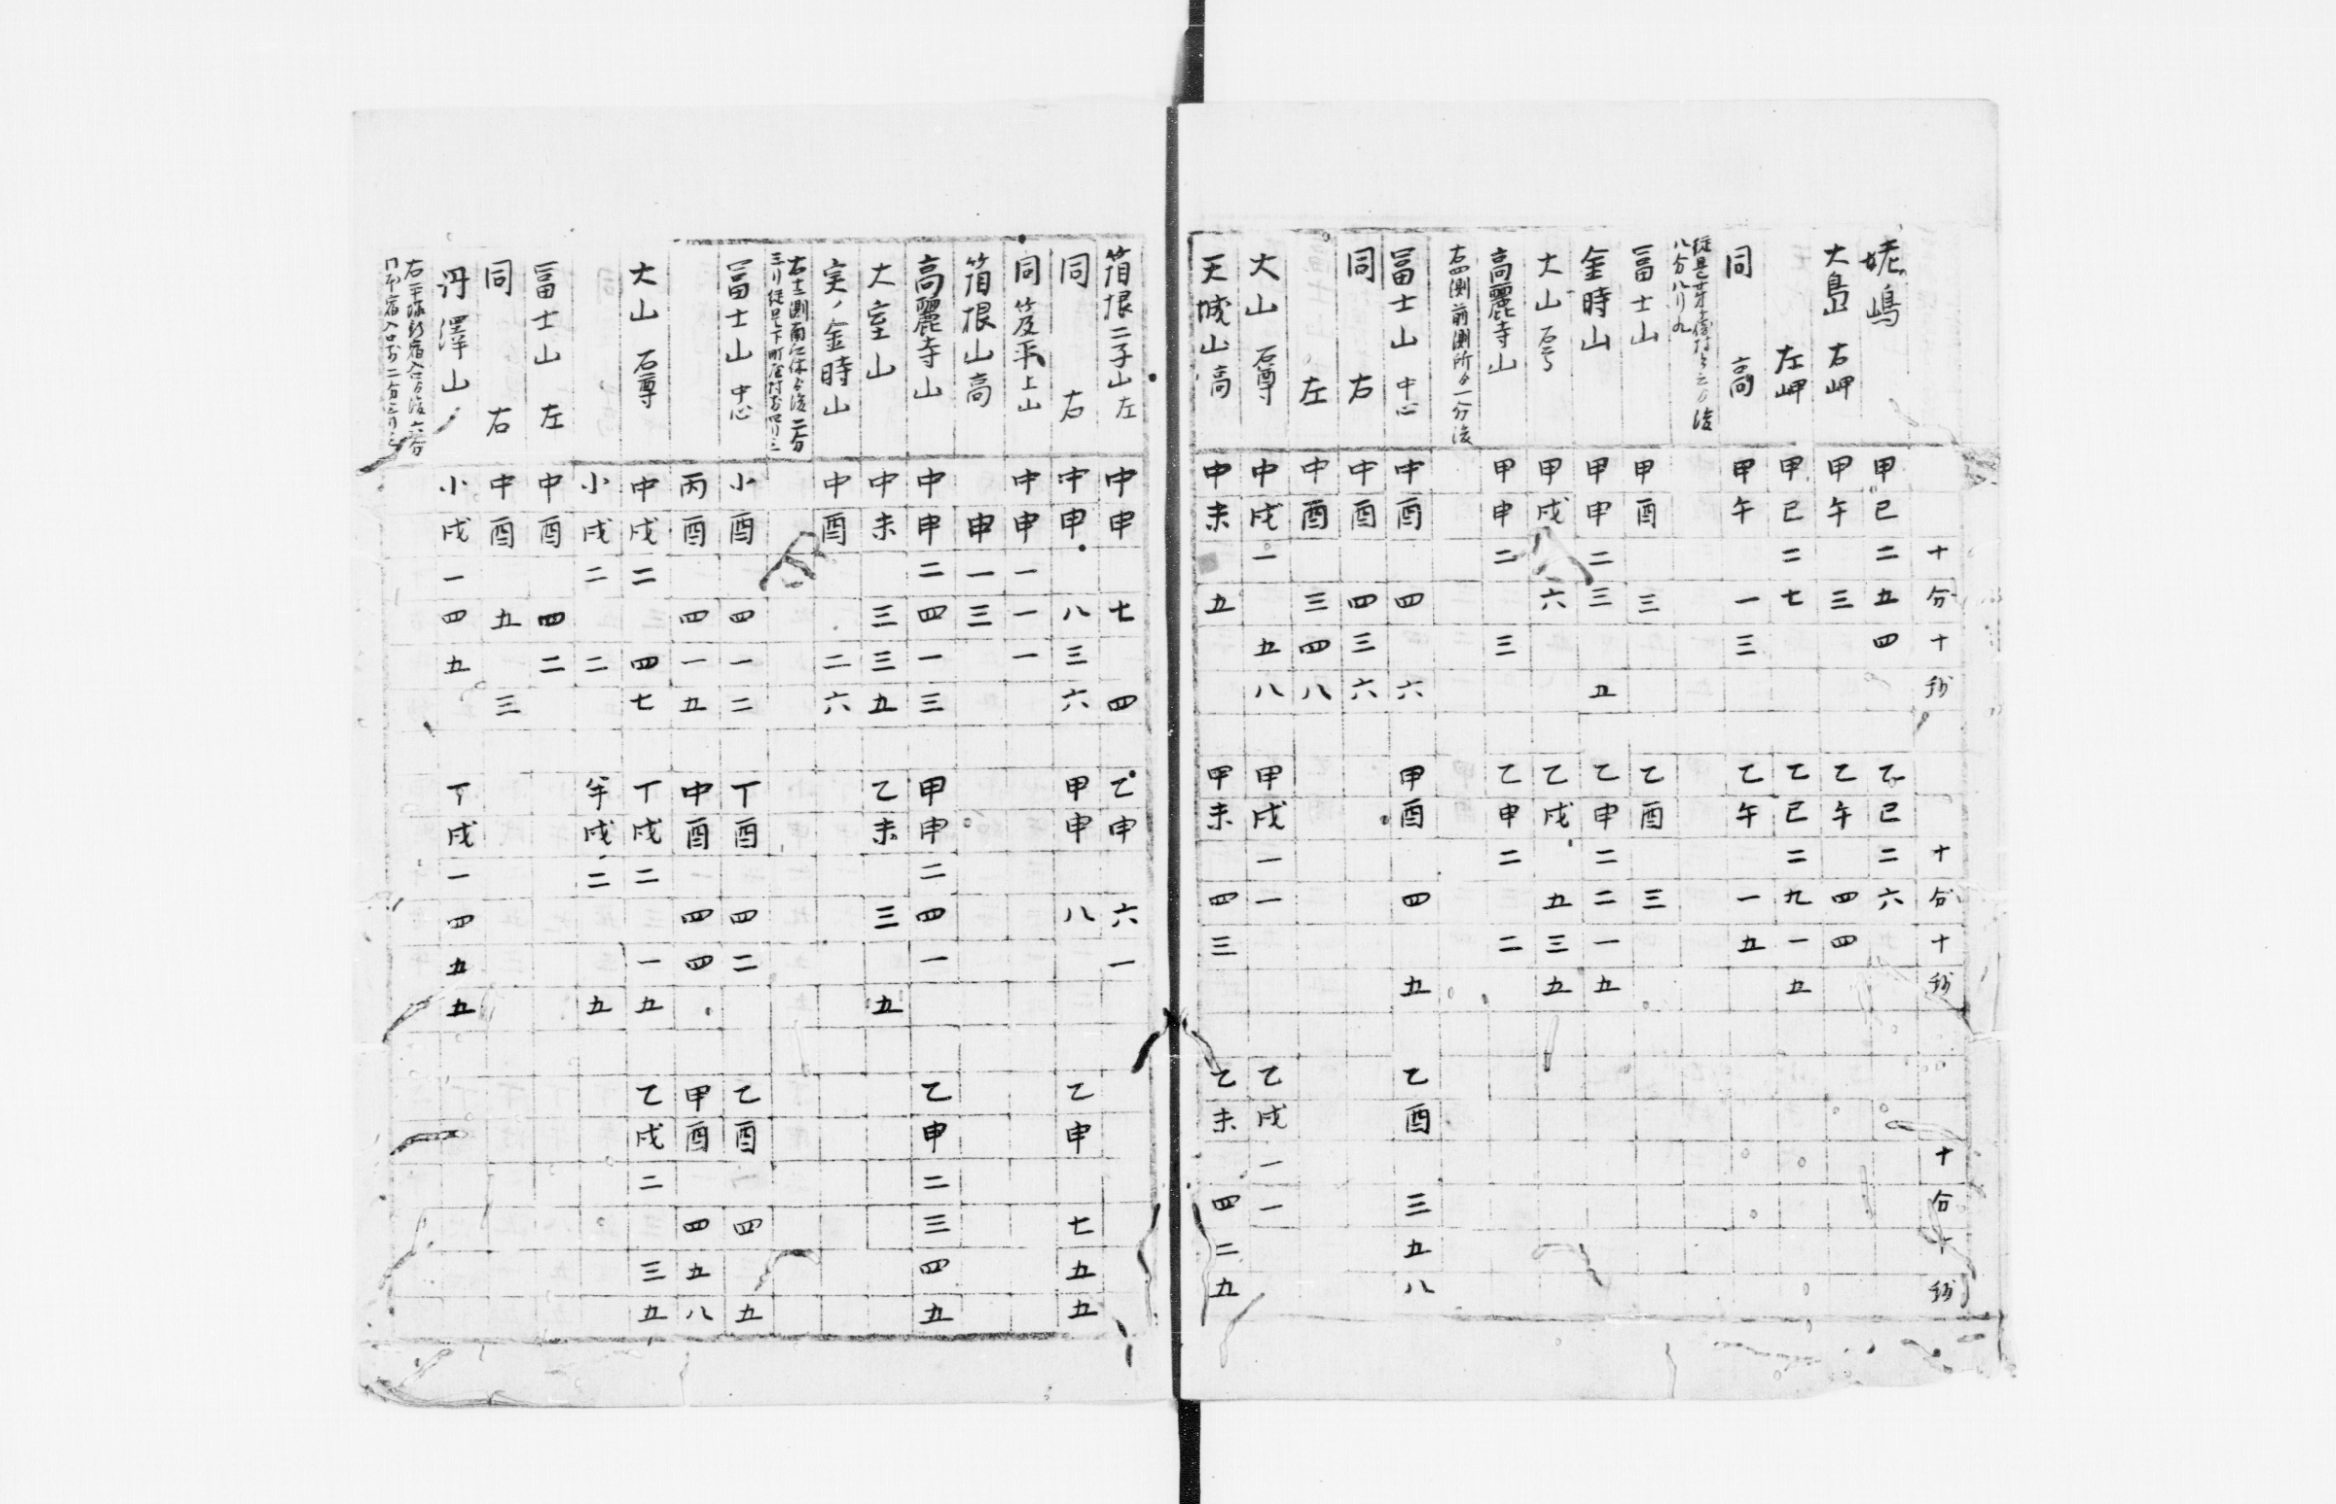 十分十秒 十分十秒 十分十秒
姥嶋 甲巳二五四 乙巳二六
大島 右岬 甲午三 乙午四四
左岬 甲巳二七 乙巳二九一五
同 高 甲午一三 乙午一五
八分八リ九
冨士山 甲酉三 乙酉三
金時山 甲申二三五 乙申二二一五
大山 石尊 甲戌六 乙戌五三五
高麗寺山 甲申二三 乙申二二
右四測前測所ゟ一分後
冨士山 中心 中酉四六 甲酉四五 乙酉三五八
同 右 中酉四三六
左 中酉三四八
大山 石尊 中戌一五八 甲戌一一 乙戌一一
天城山高 中未五 甲未四三 乙未四二九
箱根二子山左 中申七四 乙申六一
同 右 中申八三六 甲申八 乙申七五五
同 笈平上山 中申一一一
箱根山高 申一三
高麗寺山 中申二四一三 甲申二四一 乙申二三四五
大室山 中未三三五 乙未三五
実ノ金時山 中酉二六
冨士山 中心 小酉四一二 丁酉四二 乙酉四五
丙酉四一五 中酉四四 甲酉四五八
大山 石尊 中戌二四七 丁戌二一五 乙戌二三五
小戌二二 戌二五
冨士山 左 中酉四二
同 右 中酉五三
丹澤山 小戌一四五 丁戌一四五五